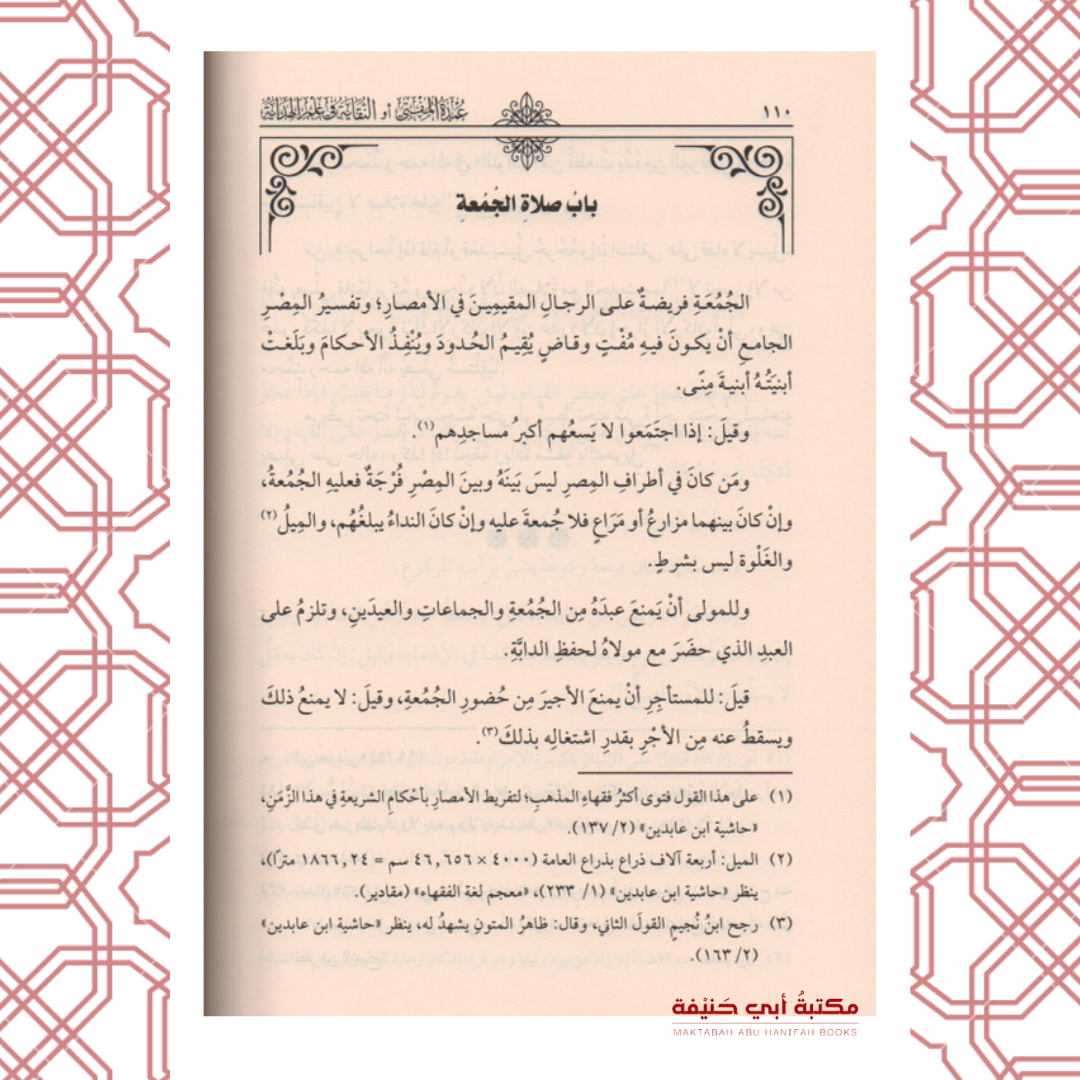 ١١٠
عُمْدَةُ المُفْتِي أو النُّقَايَة في علم الهداية
بابُ صلاةِ الجُمُعةِ
الجُمُعَةِ فريضةٌ على الرجالِ المقيمِينَ في الأمصارِ؛ وتفسيرُ المِصْرِ
الجامعِ أنْ يكونَ فيهِ مُفْتٍ وقاضٍ يُقِيمُ الحُدودَ ويُنْفِذُ الأحكامَ وبَلَغتْ
أبنيَتُهُ أبنيةَ مِنًى.
وقيلَ: إذا اجتمَعوا لا يَسعُهم أكبرُ مساجدِهم(١).
ومَن كانَ في أطرافِ المِصرِ ليسَ بَينَهُ وبينَ المِصْرِ فُرْجَةٌ فعليهِ الجُمُعةُ،
وإنْ كانَ بينهما مزارعُ أو مَرَاعٍ فلا جُمعةَ عليه وإنْ كانَ النداءُ يبلغُهُم، والمِيلُ(٢)
والغَلْوة ليس بشرطٍ.
وللمولى أنْ يَمنعَ عبدَهُ مِن الجُمُعةِ والجماعاتِ والعيدَينِ، وتلزمُ على
العبدِ الذي حضَرَ مع مولاهُ لحفظِ الدابَّةِ.
قيلَ: للمستأجِرِ أنْ يمنعَ الأجيرَ مِن حُضورِ الجُمُعةِ، وقيلَ: لا يمنعُ ذلكَ
ويسقطُ عنه مِن الأجْرِ بقدرِ اشتغالِه بذلكَ(٣).
(١) على هذا القول فتوى أكثرُ فقهاءِ المذهبِ؛ لتفريط الأمصارِ بأحْكامِ الشريعةِ في هذا الزَّمَنِ،
«حاشية ابن عابدين» (٢/ ١٣٧).
(٢) الميل: أربعة آلاف ذراع بذراع العامة (٤٠٠٠ × ٤٦,٦٥٦ سم = ١٨٦٦,٢٤ مترًا)،
ينظر «حاشية ابن عابدين» (١/ ٢٣٣)، «معجم لغة الفقهاء» (مقادير).
(٣) رجح ابنُ نُجيمٍ القولَ الثاني، وقال: ظاهرُ المتونِ يشهدُ له، ينظر «حاشية ابن عابدين»
(٢/ ١٦٣).
مكتبةُ أبي حَنيْفة
MAKTABAH ABU HANIFAH BOOKS